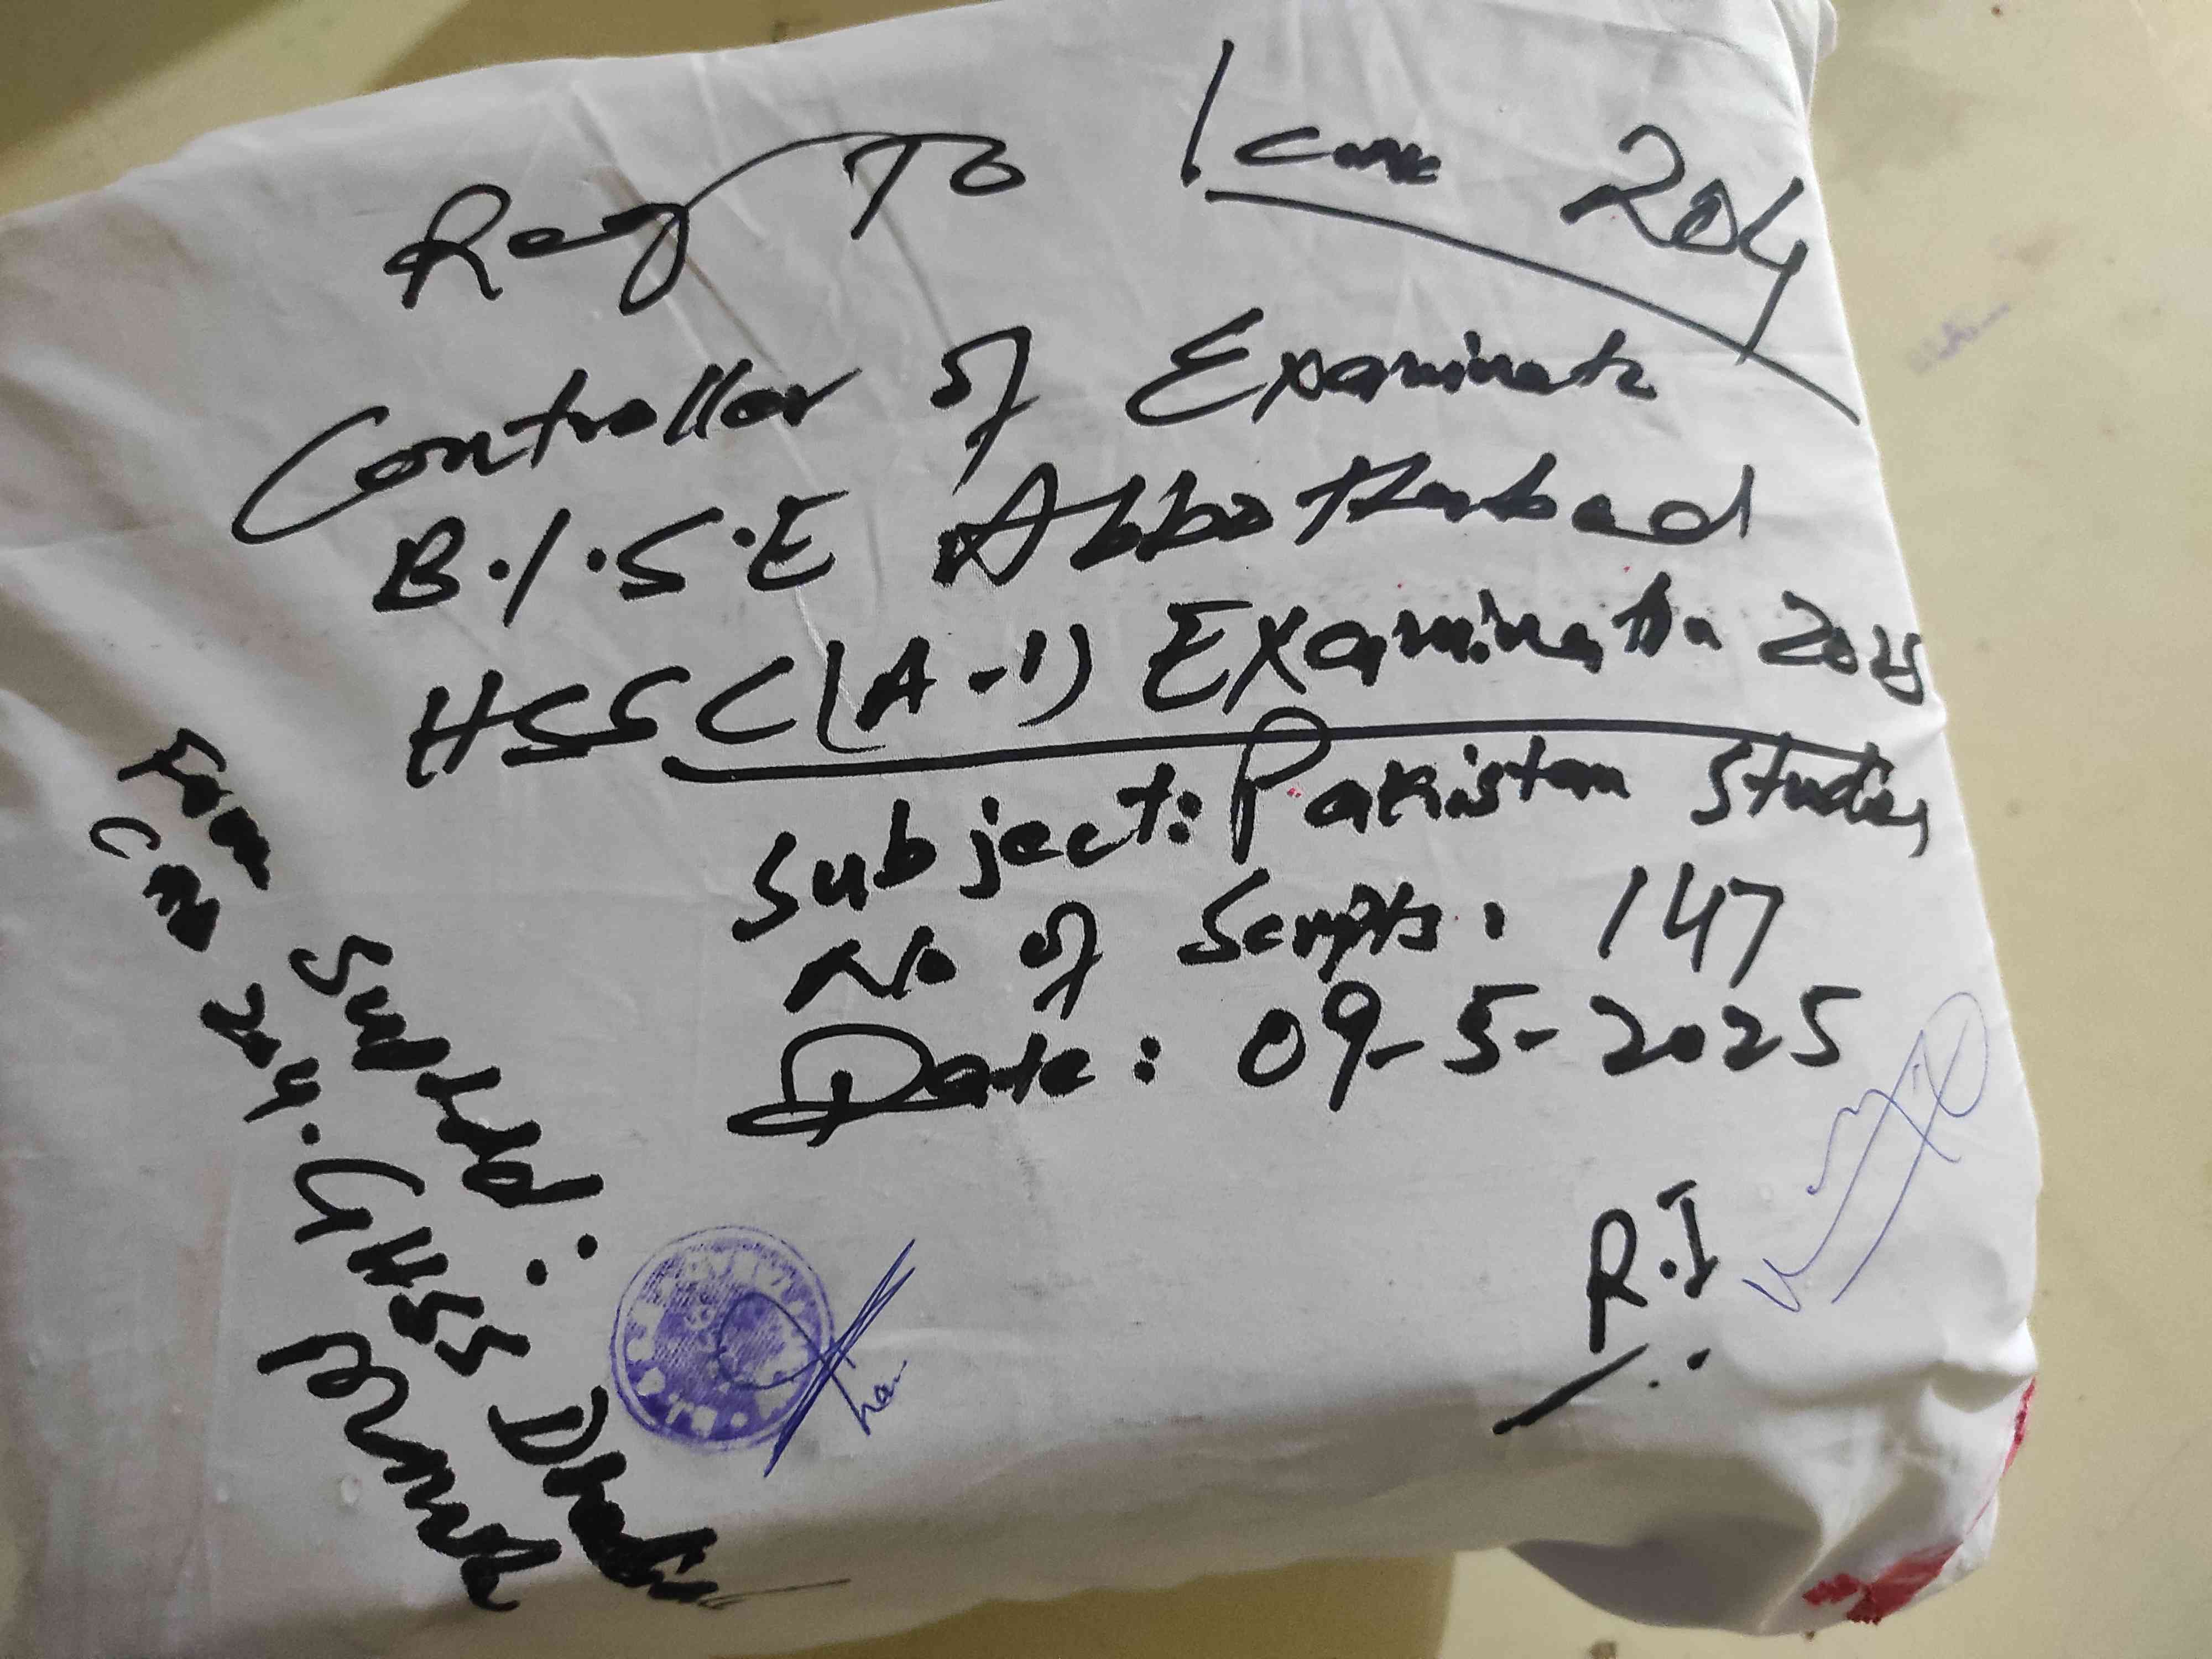 Reg To
204
Controller of Examinatn
B.I.S.E Abbottabad
HSSC(A-1) Examination 2025
Subject: Pakistan Studies
No of Scripts: 147
Date: 09-5-2025
R.I
From Suptd:
204. GHSS